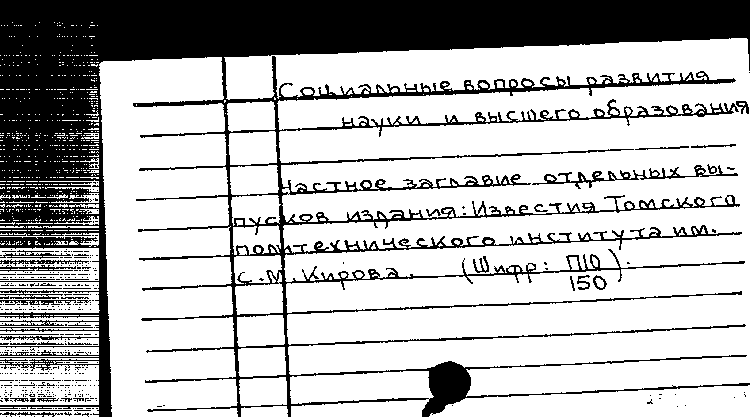 Социальные вопросы развития
науки и высшего образования
Частное заглавие отдельных вы-
пусков издания: Известия Томского
политехнического института им.
С.М. Кирова. (Шифр: П10/150).